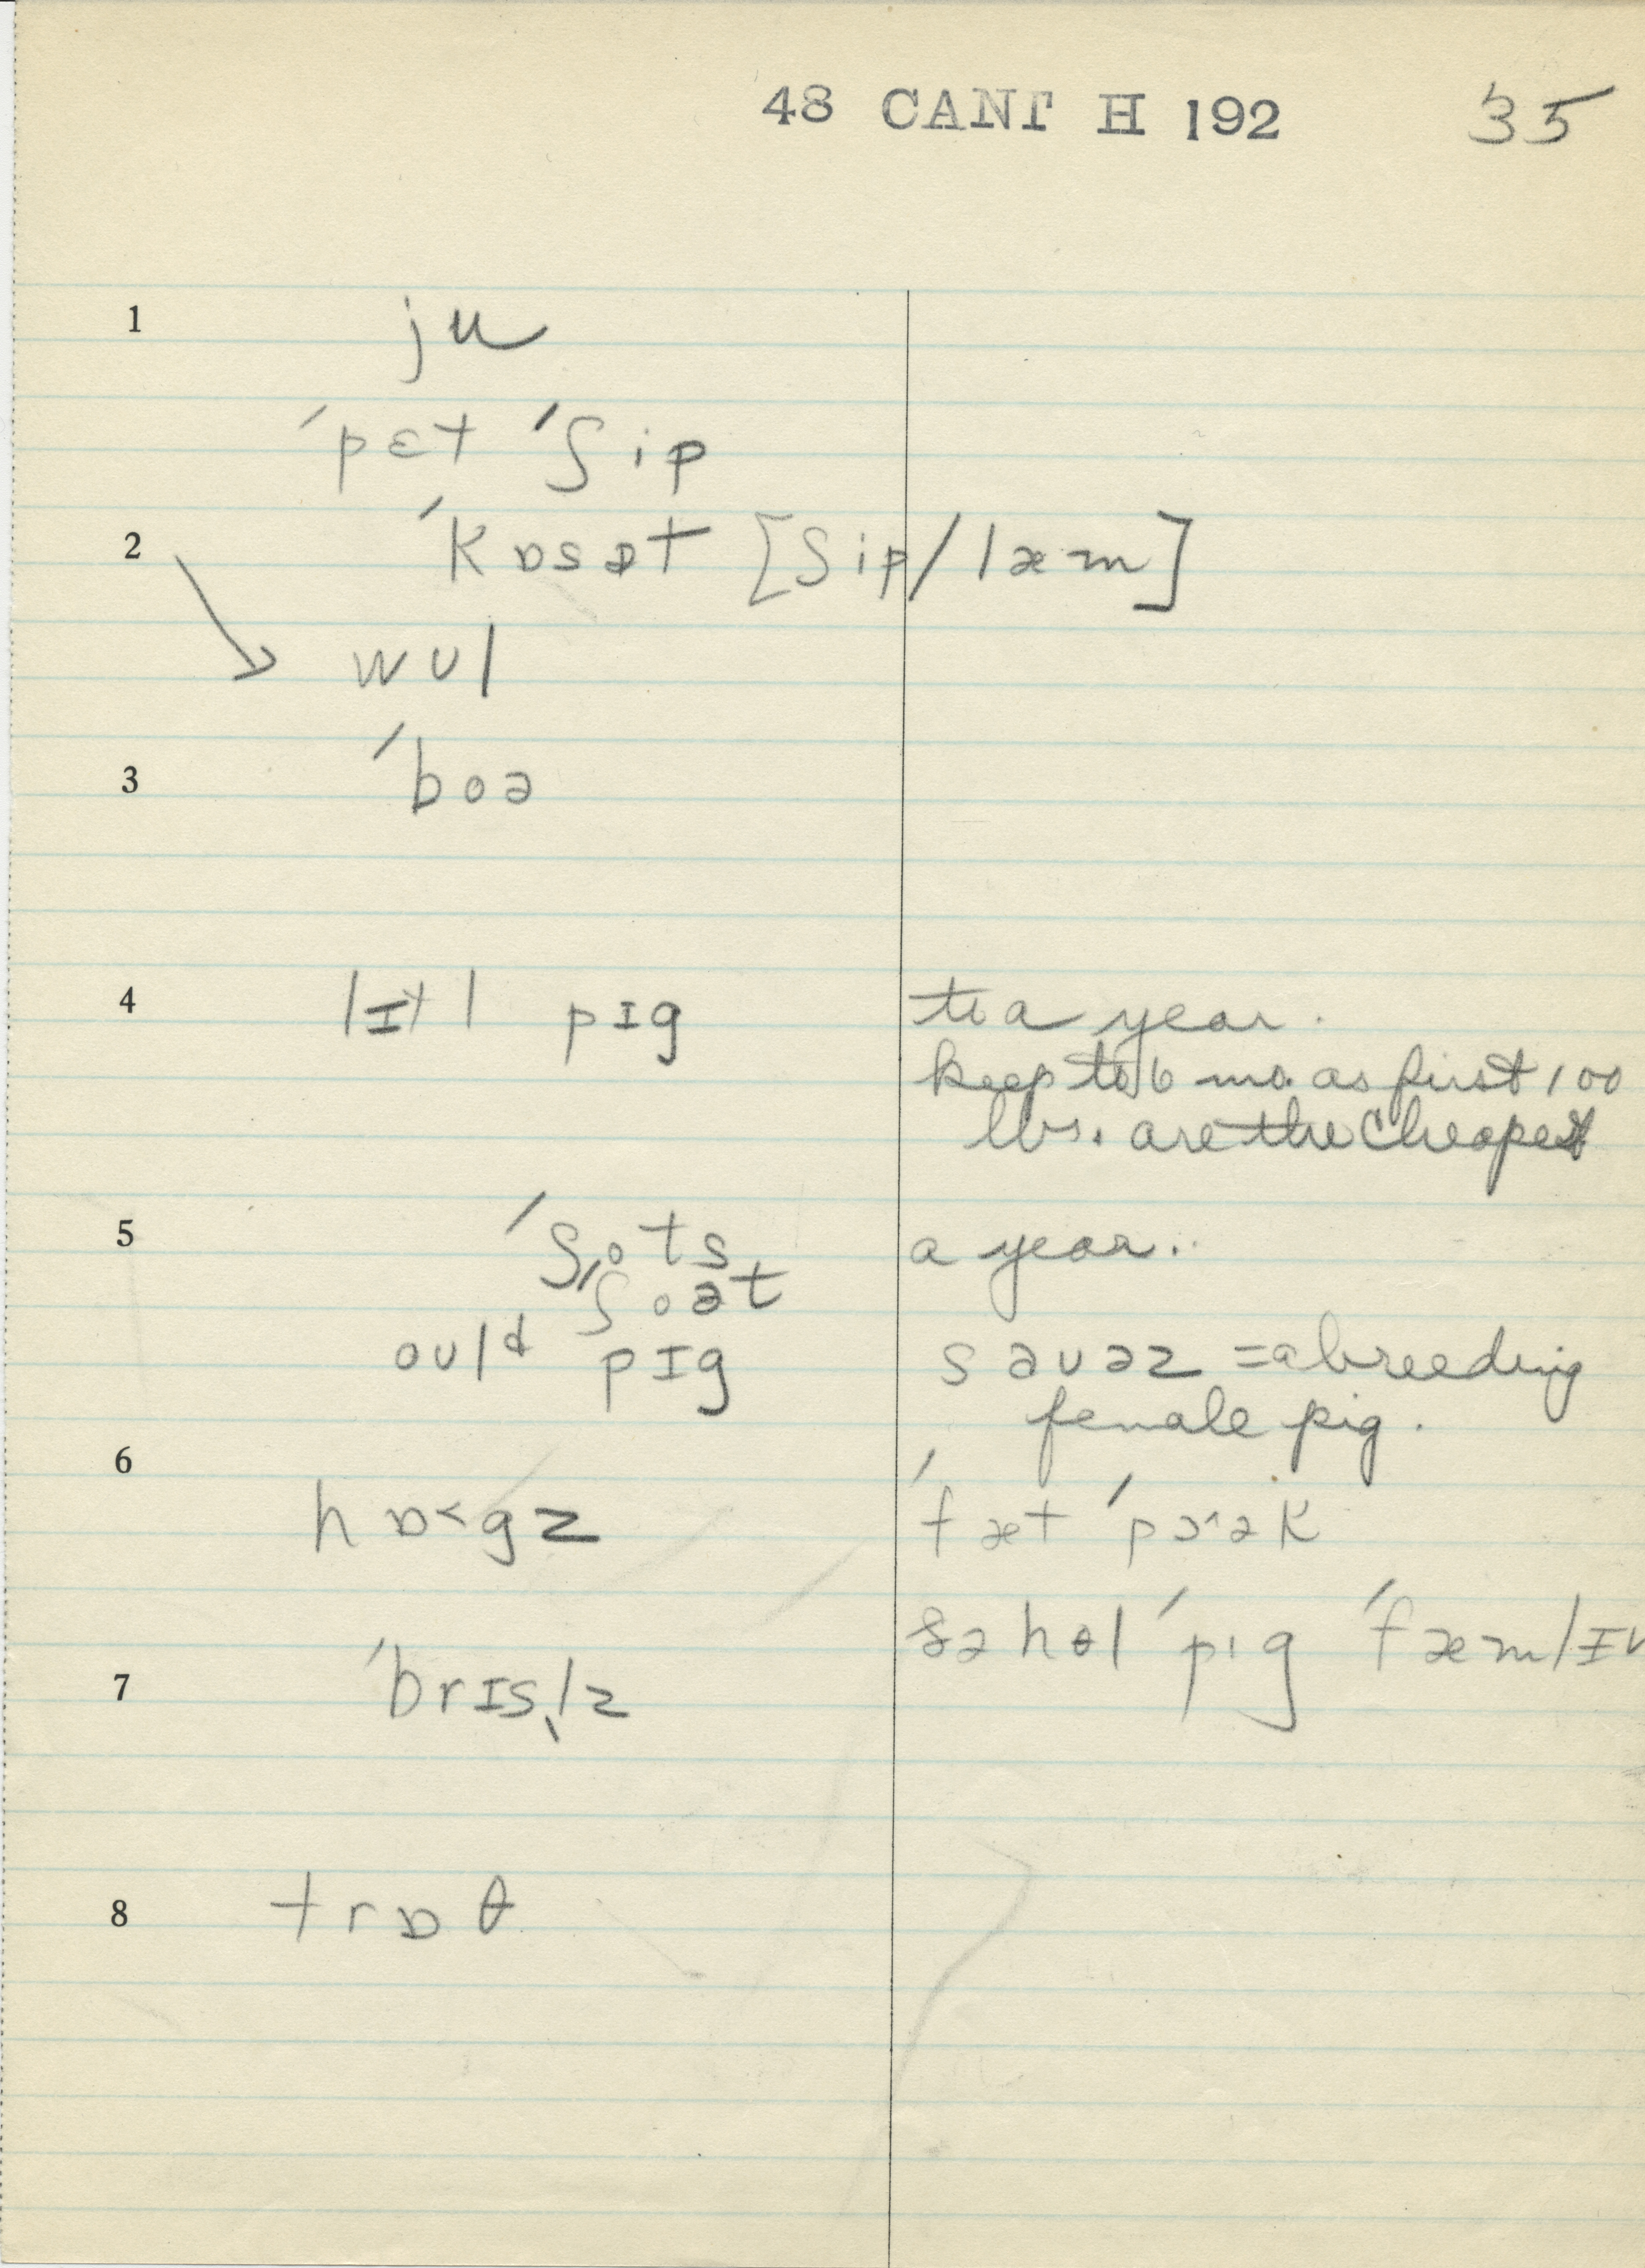 48 CANT H 192 35
1 ju
ˈpɛt ˈʃip
2 ˈkɒsət [ʃip/læm]
wʊl
3 ˈboə
4 lɪtl pɪg to a year.
keep to 6 mo. as first 100
lbs. are the cheapest
5 ˈʃots a year..
ˈʃoət
oʊld pɪg səʊəz = a breeding
female pig.
6
hɒ˂gz ˈfæt ˈpɔ˂ək
hol ˈpig ˈfæmlɪ
7 ˈbrɪsl̩z
8 trɒθ